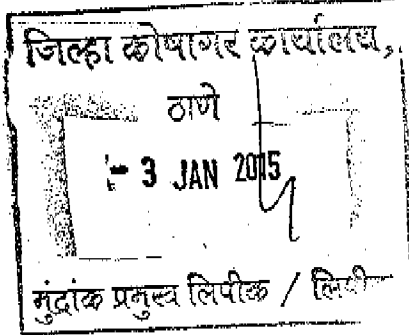 जिल्हा कोषागर कार्यालय,
ठाणे
- 3 JAN 2015
मुंद्रांक प्रमुख लिपीक / लिपीक